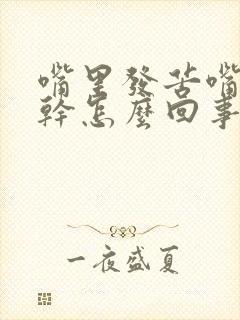 嘴里發苦嘴
幹怎麼回事
一夜盛夏